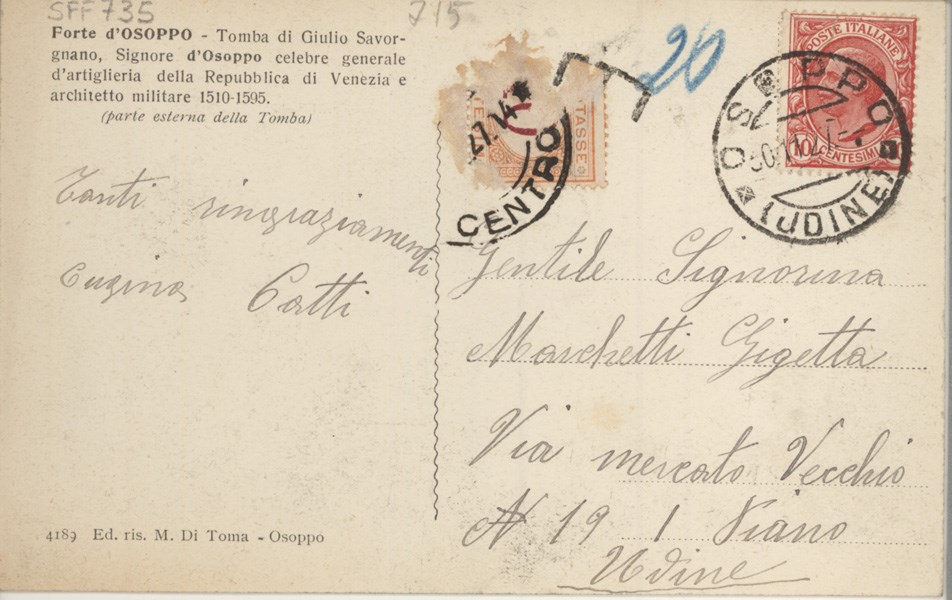 SFF735
715
Forte d'OSOPPO - Tomba di Giulio Savor-
gnano, Signore d'Osoppo celebre generale
d'artiglieria della Repubblica di Venezia e
architetto militare 1510-1595.
(parte esterna della Tomba)
Tanti ringraziamenti
Cugina Catti
4189 Ed. ris. M. Di Toma - Osoppo
TASSE
CENTRO
T
20
POSTE ITALIANE
10 CENTESIMI
OSOPPO
(UDINE)
Gentile Signorina
Marchetti Gigetta
Via mercato Vecchio
N 19 1 Piano
Udine